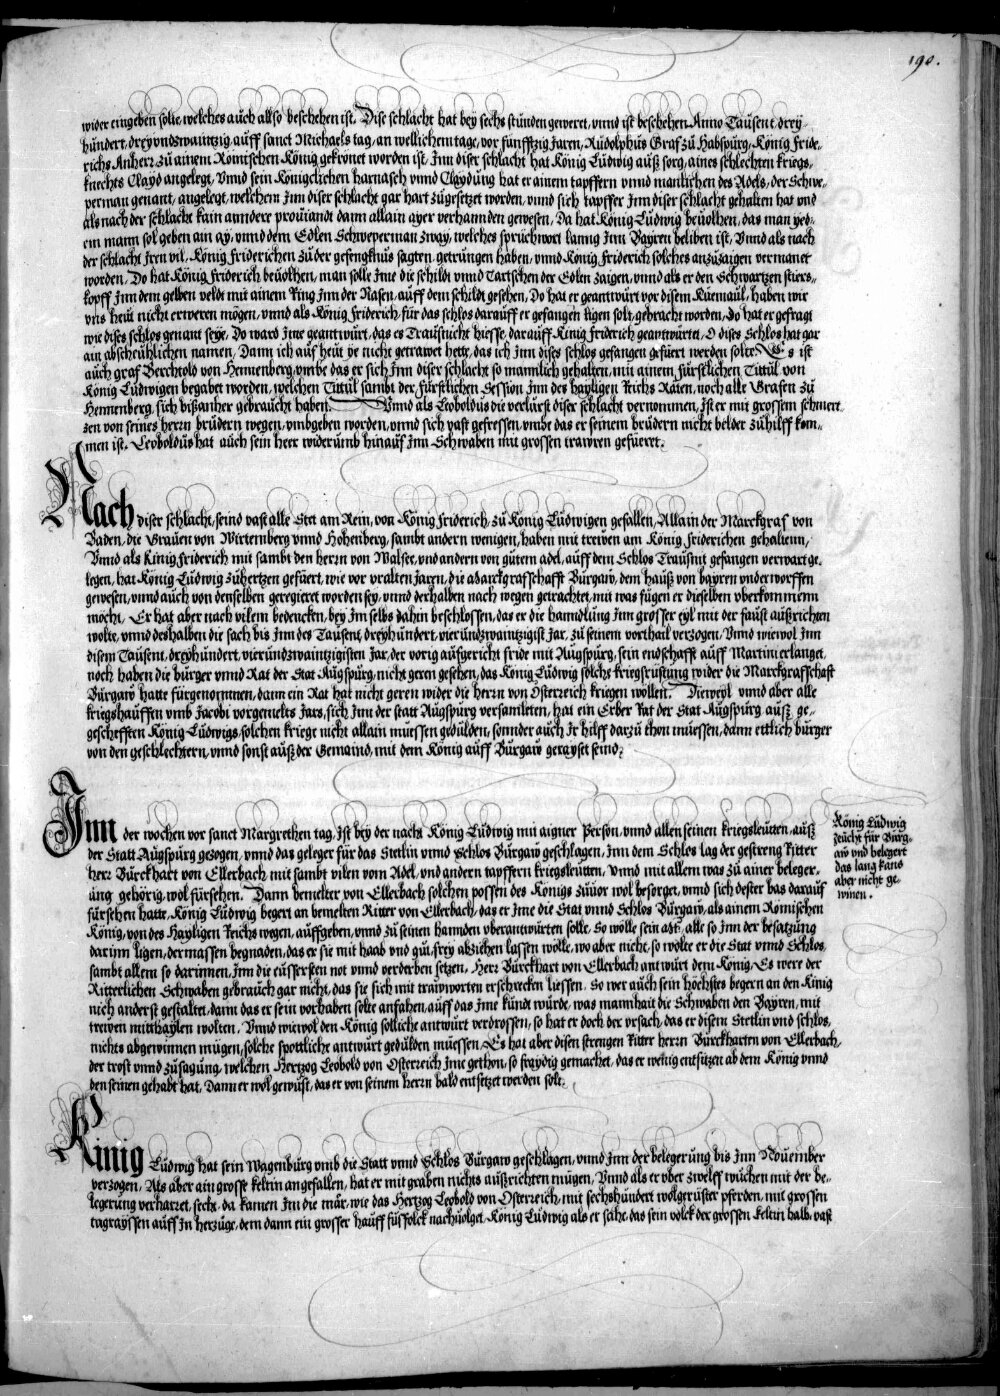 190.
wider eingeben solte, welches auch allso beschehen ist. Dise schlacht hat bey sechs stunden geweret, vnnd ist beschehen Anno Tausent, drey-
hundert, dreyvndzwaintzig, auff sanct Michaels tag, an wellichem tage, vor funfftzig Jaren, Rudolphus Graf zu Habspurg, König Fride,
richs Anherr zu ainem Römischen König gekrönet worden ist, Inn diser schlacht hat König Ludwig auß sorg, aines schlechten kriegs,
knechts Clayd angelegt, Vnnd sein Königclichen harnasch vnnd Claydung hat er ainem tapffern vnnd manlichen des Adels, der Schwe,
perman genant, angelegt, welchem Inn diser schlacht gar hart zugesetzt worden, vnnd sich tapffer Inn diser schlacht gehalten hat vnd
als nach der schlacht kain anndere prouiandt dann allain ayer verhannden gewesen, Da hat König Ludwig beuolhen, das man yed-
em mann sol geben ain ay, vnnd dem Edlen Schweperman zway, welches sprüchwort lanng Inn Bayren beliben ist, Vnnd als nach
der schlacht Iren vil, König Friderichen zu der gefengknus sagten, getrungen haben, vnnd König Friderich solches anzuzaigen vermanet
worden, Do hat König Friderich beuolhen, man solle Ime die schildt vnnd Tartschen der Edlen zaigen, vnnd als er den Schwartzen stiers-
kopff Inn dem gelben veldt mit ainem Ring Inn der Nasen, auff dem schildt gesehen, Do hat er geantwurt vor disem Küemaul, haben wir
vns heut nicht erweren mögen, vnnd als König Friderich, für das schlos darauff er gefangen ligen solt, gebracht worden, do hat er gefragt
wie dises schlos genant seye, Do ward Ime geantwurt, das es Trausnicht hiesse, darauff König Friderich geantwurtet, O dises Schlos hat gar
ain abscheuhlichen namen, Dann ich auf heut ye nicht getrawet hette, das ich Inn dises schlos gefangen gefuert werden solte. Es ist
auch graf Berchtold von Hennenberg, vmbe das er sich Inn diser schlacht so mannlich gehalten, mit ainem fürstlichen Tittul von
König Ludwigen begabet worden, welchen Tittul sambt der fürstlichen Session Inn des hayligen Reichs Räten, noch alle Grafen zu
Hennenberg, sich bißanher gebraucht haben. Vnnd als Leoboldus die verlurst diser schlacht vernommen, Ist er mit grossem schmert-
zen von seines herrn brudern wegen, vmbgeben worden, vnnd sich vast gefressen, vmbe das er seinem brudern nicht belder zuhilff kom-
men ist. Leoboldus hat auch sein heer widerumb hinauf Inn Schwaben mit grossen trawren gefueret.
Nach diser schlacht, seind vast alle Stet am Rein, von König Friderich, zu König Ludwigen gefallen, Allain der Marckgraf von
Baden, die Grauen von Wirtemberg vnnd Hohenberg, sambt andern wenigen, haben mit trewen am König Friderichen gehaltenn,
Vnnd als König Friderich mit sambt den herrn von Walsee, vnd andern von gutem adel, auff dem Schlos Trausnit gefangen verwart ge.
legen, hat König Ludwig zuhertzen gefuert, wie vor vralten Jaren, die Marckgrafschafft Burgaw, dem hauß von bayren vnderworffen
gewesen, vnnd auch von denselben geregieret worden sey, vnnd derhalben nach wegen getrachtet, mit was fugen er dieselben vberkommenn
möcht. Er hat aber nach vilem bedencken, bey Im selbs dahin beschlossen, das er die hanndlung Inn grosser eyl mit der faust außrichten
wolte, vnnd deshalben die sach bis Inn des Tausent, dreyhundert, vierundzwaintzigist Jar, zu seinem vorthail verzogen, Vnnd wiewol Inn
disem Tausent, dreyhundert, vierundzwaintzigisten Jar, der vorig aufgericht fride mit Augspurg, sein endschafft auff Martini erlanget,
noch haben die burger vnnd Rat der Stat Augspurg, nicht geren gesehen, das König Ludwig solche kriegsrüstung wider die Marckgrafschafft
Burgaw hatte fürgenommen, dann ein Rat hat nicht geren wider die herrn von Österreich kriegen wollen. Dieweyl vnnd aber alle
kriegshauffen vmb Jacobi vorgemelts Jars, sich Inn der statt Augspurg versamleten, hat ein Erber Rat der Stat Augspurg auß ge-
geschefften König Ludwigs, solchen kriege nicht allain muessen gedulden, sonnder auch Ir hilff darzu thon muessen, dann ettlich burger
von den geschlechtern, vnnd sonst auß der Gemaind, mit dem König auff Burgaw gerayset seind.
Inn der wochen vor sanct Margrethen tag, Ist bey der nacht König Ludwig mit aigner Person, vnnd allen seinen kriegsleutten, auß
der Statt Augspurg gezogen, vnnd das geleger für das Stetlin vnnd Schlos Burgaw geschlagen, Inn dem Schlos lag der gestreng Ritter
herr Burckhart von Ellerbach mit sambt vilen vom Adel, vnd andern tapffern kriegsleutten, Vnnd mit allem was zu ainer beleger-
ung gehörig, wol fürsehen. Dann bemelter von Ellerbach solchem possen des Königs zuuor wol besorget, vnnd sich dester bas darauf
fürsehen hatte, König Ludwig begert an bemelten Ritter von Ellerbach, das er Ime die Stat vnnd Schlos Burgaw, als ainem Römischen
König, von des Hayligen Reichs wegen, auffgeben, vnnd zu seinen hannden vberantwurten solle. So wolle sein alle so Inn der besatzung
darinn ligen, dermassen begnaden, das er sie mit haab vnd gut, frey abziehen lassen wölle, wo aber nicht, so wolte er die Stat vnnd Schlos,
sambt allem so darinnen, Inn die eussersten not vnnd verderben setzen, Herr Burckhart von Ellerbach antwurt dem König, Es were der
Ritterlichen Schwaben gebrauch gar nicht, das sie sich mit trawworten erschrecken liessen. So wer auch sein höchstes begern an den König
nich anderst gestaltet, dann das er sein vorhaben solte anfahen, auff das Ime kundt würde, was mannhait die Schwaben den Bayren, mit
trewen mitthaylen wolten. Vnnd wiewol den König solliche antwurt verdrossen, so hat er doch der vrsach, das er disem Stetlin vnd schlos,
nichts abgewinnen mügen, solche spottliche antwurt gedulden muessen, Es hat aber disen strengen Ritter herrn Burckharten von Ellerbach,
der trost vnnd zusagung, welchen Hertzog Leobold von Österreich Ime gethon, so fraydig gemachet, das er wenig entsitzen ab dem König vnnd
den seinen gehabt hat, Dann er wol gewust, das er von seinem herrn bald entsetzet werden solt.
König Ludwig
zeücht für Burg-
aw vnd belegert
das lang kans
aber nicht ge-
winen.
Künig Ludwig hat sein Wagenburg vmb die Statt vnnd Schlos Burgaw geschlagen, vnnd Inn der belegerung bis Inn Nouember
verzogen, Als aber ain grosse keltin angefallen, hat er mit graben nichts außrichten mügen, Vnnd als er vber zwelff wuchen mit der be-
legerung verharret, secht, da kamen Im die mär, wie das Hertzog Leobold von Österreich, mit sechshundert wolgerüster pferden, mit grossen
tagrayssen auff In herzuge, dem dann ein grosser hauff fußfolck nachuolget, König Ludwig als er sahe, das sein volck der grossen keltin halb, vast